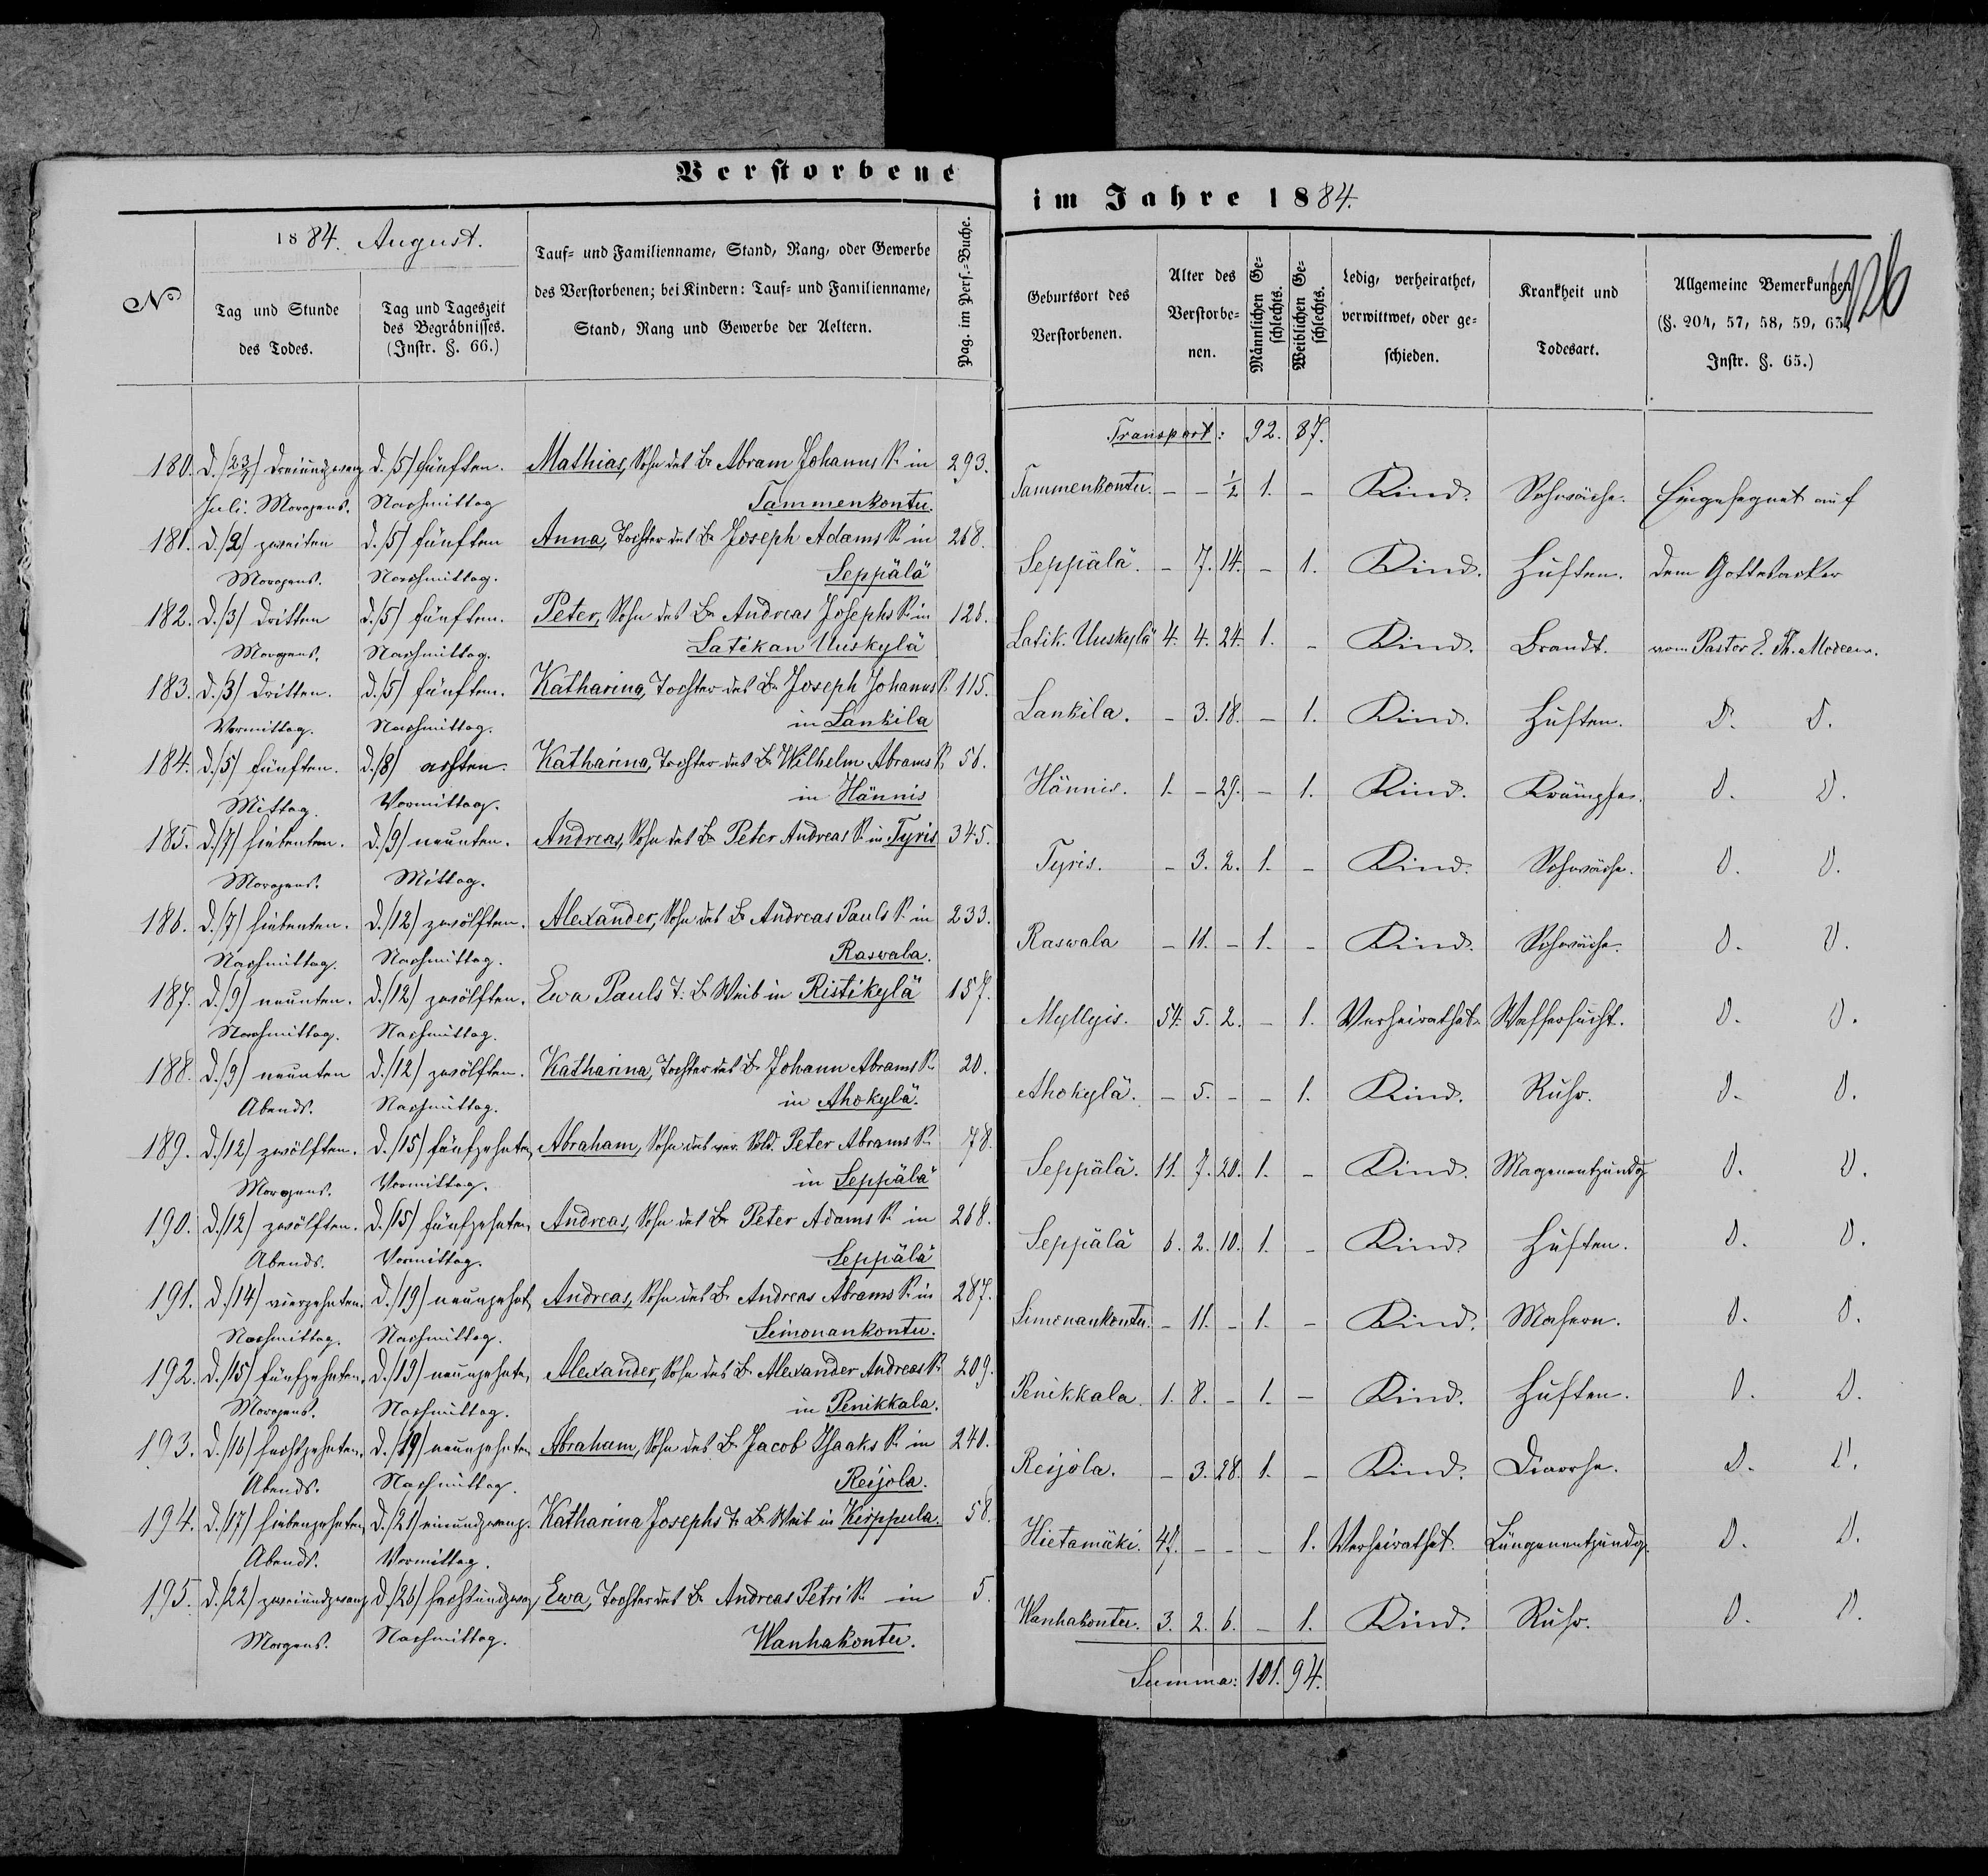 Verstorbene
im Jahre 1884.
No
1884. August.
Tag und Stunde
des Todes.
Tag und Tageszeit
des Begräbnisses.
(Instr. §. 66.)
Tauf- und Familienname, Stand, Rang, oder Gewerbe
des Verstorbenen; bei Kindern: Tauf- und Familienname,
Stand, Rang und Gewerbe der Aeltern.
Pag. im Pers.-Buche.
Geburtsort des
Verstorbenen.
Alter des
Verstorbe-
nen.
Männlichen Ge-
schlechts.
Weiblichen Ge-
schlechts.
Ledig, verheirathet,
verwittwet, oder ge-
schieden.
Krankheit und
Todesart.
Allgemeine Bemerkungen
(§. 204, 57, 58, 59, 63,
Instr. §. 65.)
Transport: 92. 87.
180. d. /23/7/ dreiundzwanz d. /5/ fünften. Mathias, Sohn des Br Abram Johanns S. in 293. Tammenkontu. - - 1/2 1. - Kind. Schwäche. Eingesegnet auf
Juli. Morgens. Nachmittag Tammenkontu.
181. d. /2/ zweiten d. /5/ fünften Anna, Tochter des Br Joseph Adams S. in 268. Seppälä. - 7. 14. - 1. Kind. Husten. dem Gottesacker
Morgens. Nachmittag. Seppälä
182. d. /3/ dritten d. /5/ fünften. Peter, Sohn des Br Andreas Josephs S. in 126. Latik. Uuskylä 4. 4. 24. 1. - Kind. Brandt. vom Pastor E. Th. Modeen.
Morgens. Nachmittag. Latikan Uuskylä
183. d. /3/ dritten. d. /5/ fünften. Katharina, Tochter des Br Joseph Johanns S. 115. Lankila. - 3. 18. - 1. Kind. Husten. D. D.
Vormittag. Nachmittag. in Lankila
184. d. /5/ fünften. d. /8/ achten. Katharina, Tochter des Br Wilhelm Abrams S. 56. Hännis. 1. - 29. - 1. Kind. Krämpfe. D. D.
Mittag. Vormittag. in Hännis
185. d. /7/ siebenten. d. /9/ neunten. Andreas, Sohn des Br Peter Andreas S. in Tyris 345. Tyris. - 3. 2. 1. - Kind. Schwäche. D. D.
Morgens. Mittag.
186. d. /7/ siebenten. d. /12/ zwölften. Alexander, Sohn des Br Andreas Pauls S. in 233. Raswala - 11. - 1. - Kind. Schwäche. D. D.
Nachmittag. Nachmittag. Raswala.
187. d. /9/ neunten. d. /12/ zwölften. Ewa Pauls T. Br Weib in Ristikylä 157. Myllyis. 54. 5. 2. - 1. Verheirathet. Wassersucht. D. D.
Nachmittag. Nachmittag.
188. d. /9/ neunten d. /12/ zwölften. Katharina, Tochter des Br Johann Abrams S. 20. Ahokylä. - 5. - - 1. Kind. Ruhr. D. D.
Abends. Nachmittag. in Ahokylä.
189. d. /12/ zwölften. d. /15/ fünfzehnten, Abraham, Sohn des ver. Sold. Peter Abrams S. 78. Seppälä. 11. 7. 20. 1. - Kind. Magenentzündg D. D.
Morgens. Vormittag. in Seppälä
190. d. /12/ zwölften. d. /15/ fünfzehnten, Andreas, Sohn des Br Peter Adams S. in 268. Seppälä 6. 2. 10. 1. - Kind. Husten. D. D.
Abends. Vormittag. Seppälä
191. d. /14/ vierzehnten. d. /19/ neunzehnt, Andreas, Sohn des Br Andreas Abrams S. in 287. Simonankontu. - 11. - 1. - Kind. Masern. D. D.
Nachmittag. Nachmittag. Simonankontu.
192. d. /15/ fünfzehnten. d. /19/ neunzehnte, Alexander, Sohn des Br Alexander Andreas S. 209. Penikkala. 1. 8. - 1. - Kind. Husten. D. D.
Morgens. Nachmittag. in Penikkala.
193. d. /16/ sechszehnten. d. /19/ neunzehnten Abraham, Sohn des Br Jacob Isaaks S. in 240. Reijola. - 3. 28. 1. - Kind. Diarrhe. D. D.
Abends. Nachmittag. Reijola.
194. d. /17/ siebenzehnten, d. /21/ einundzwanz. Katharina Josephs T. Br Weib in Kirppula. 58. Hietamäki. 47. - - - 1. Verheirathet. Lungenentzündg. D. D.
Abends. Vormittag.
195. d. /22/ zweiundzwanz d. /26/ sechsundzwanz Ewa, Tochter des Br Andreas Petri S. in 5. Wanhakontu. 3. 2. 6. - 1. Kind. Ruhr. D. D.
Morgens. Nachmittag. Wanhakontu.
Summa: 101. 94.